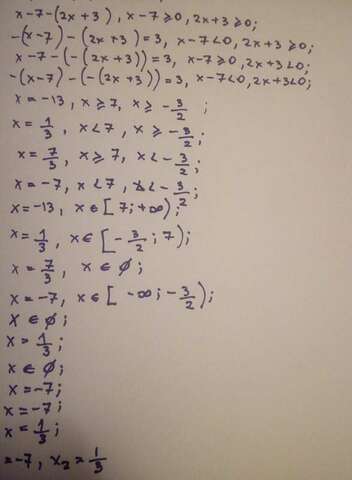 x-7-(2x+3), x-7⩾0, 2x+3⩾0;
-(x-7)-(2x+3)=3, x-7<0, 2x+3⩾0;
x-7-(-(2x+3))=3, x-7⩾0, 2x+3<0;
-(x-7)-(-(2x+3))=3, x-7<0, 2x+3<0;
x=-13, x⩾7, x⩾-3/2;
x=1/3, x<7, x⩾-3/2;
x=7/3, x⩾7, x<-3/2;
x=-7, x<7, x<-3/2;
x=-13, x∈[7;+∞);
x=1/3, x∈[-3/2;7);
x=7/3, x∈∅;
x=-7, x∈[-∞;-3/2);
x∈∅;
x=1/3;
x∈∅;
x=-7;
x=-7;
x=1/3;
=-7, x₂=1/3